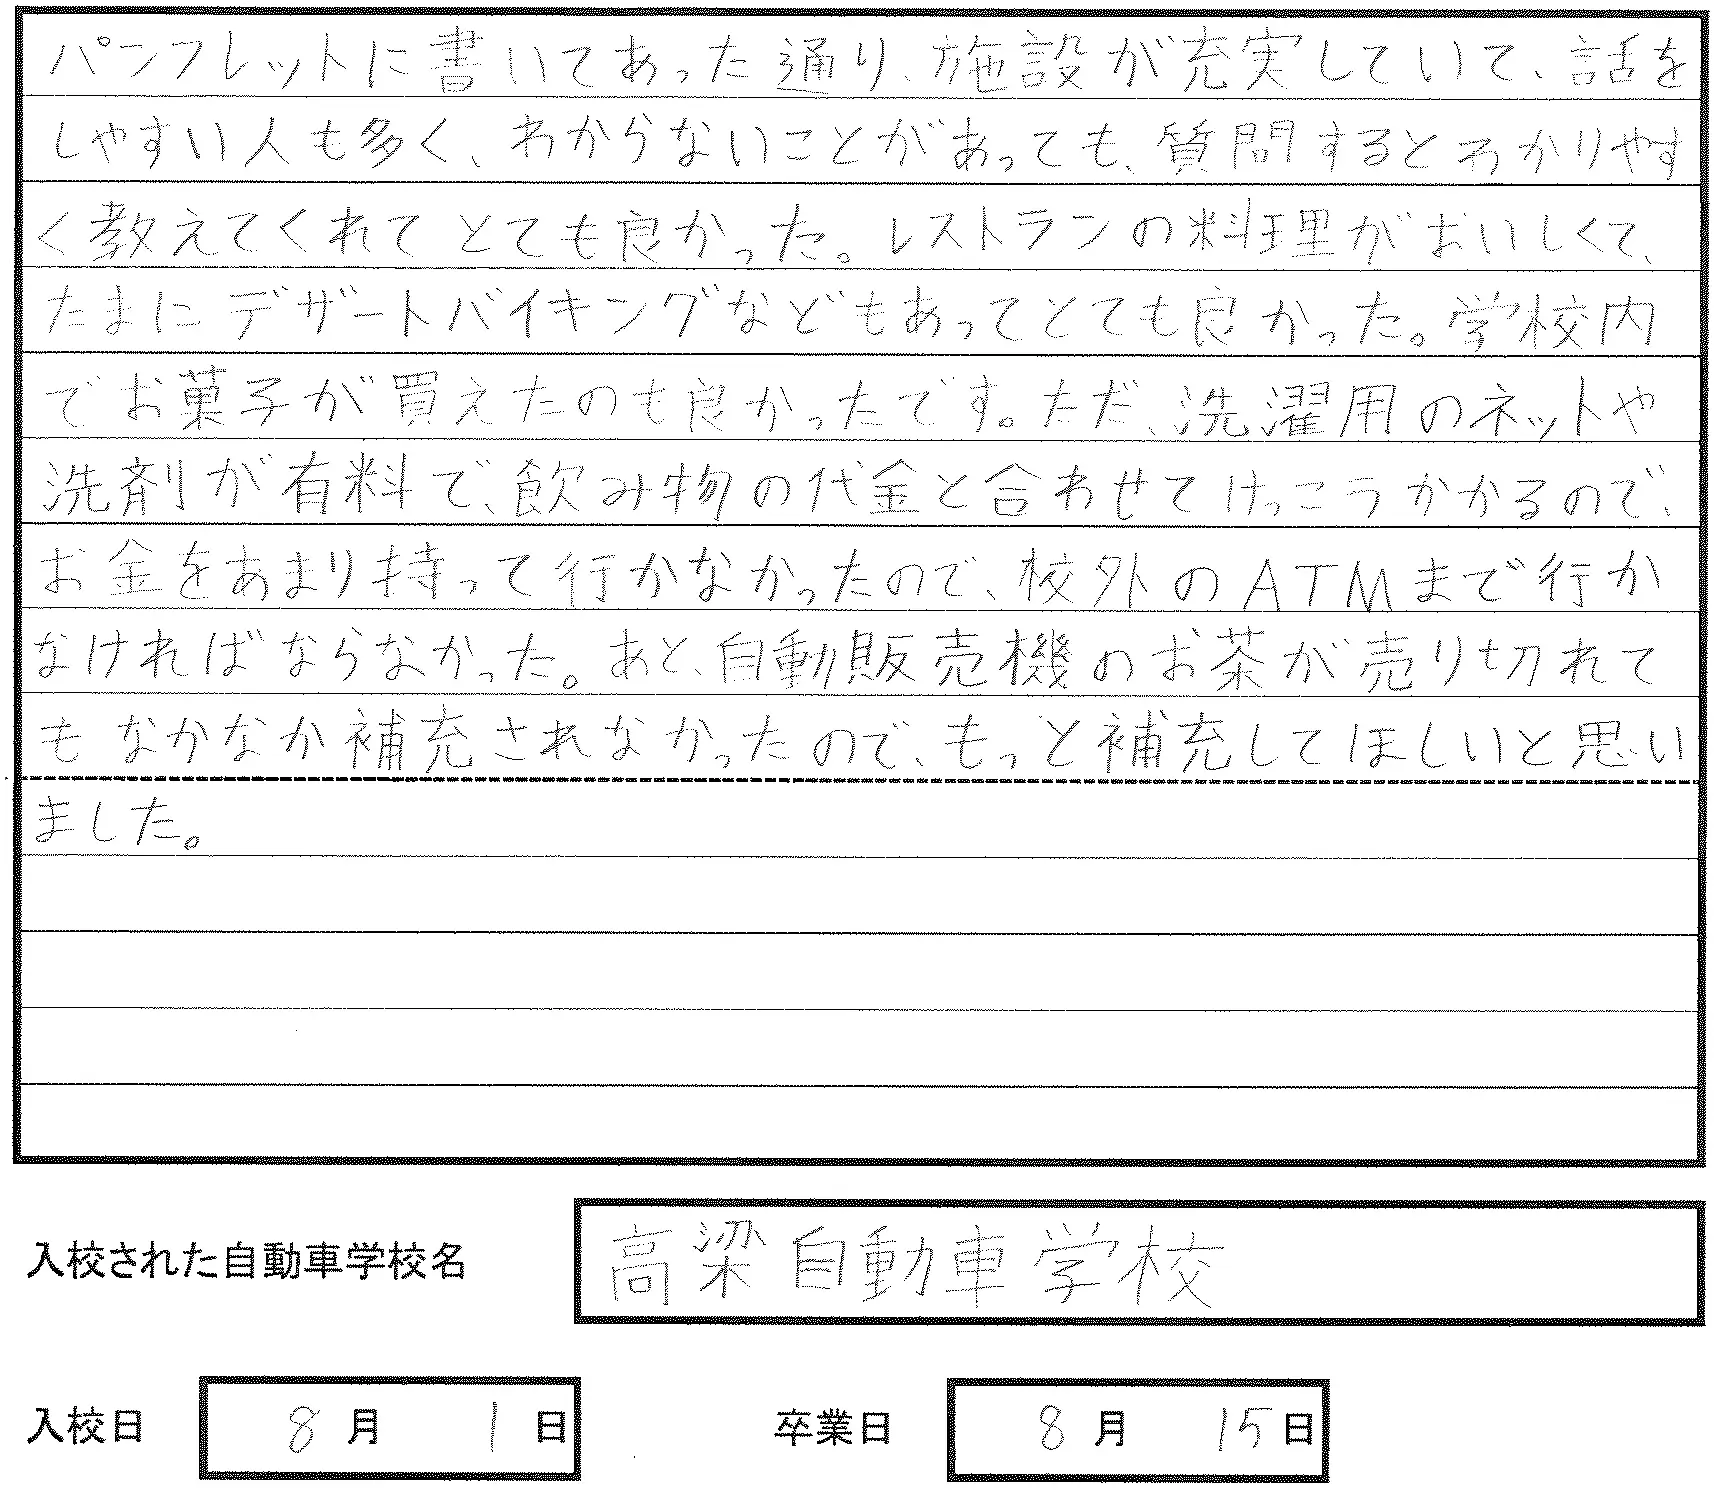 パンフレットに書いてあった通り、施設が充実していて、話を
しやすい人も多く、わからないことがあっても、質問するとわかりやす
く教えてくれてとても良かった。レストランの料理がおいしくて、
たまにデザートバイキングなどもあってとても良かった。学校内
でお菓子が買えたのも良かったです。ただ、洗濯用のネットや
洗剤が有料で、飲み物の代金と合わせてけっこうかかるので、
お金をあまり持って行かなかったので、校外のATMまで行か
なければならなかった。あと、自動販売機のお茶が売り切れて
もなかなか補充されなかったので、もっと補充してほしいと思い
ました。
入校された自動車学校名 高梁自動車学校
入校日 8月 1日 卒業日 8月 15日